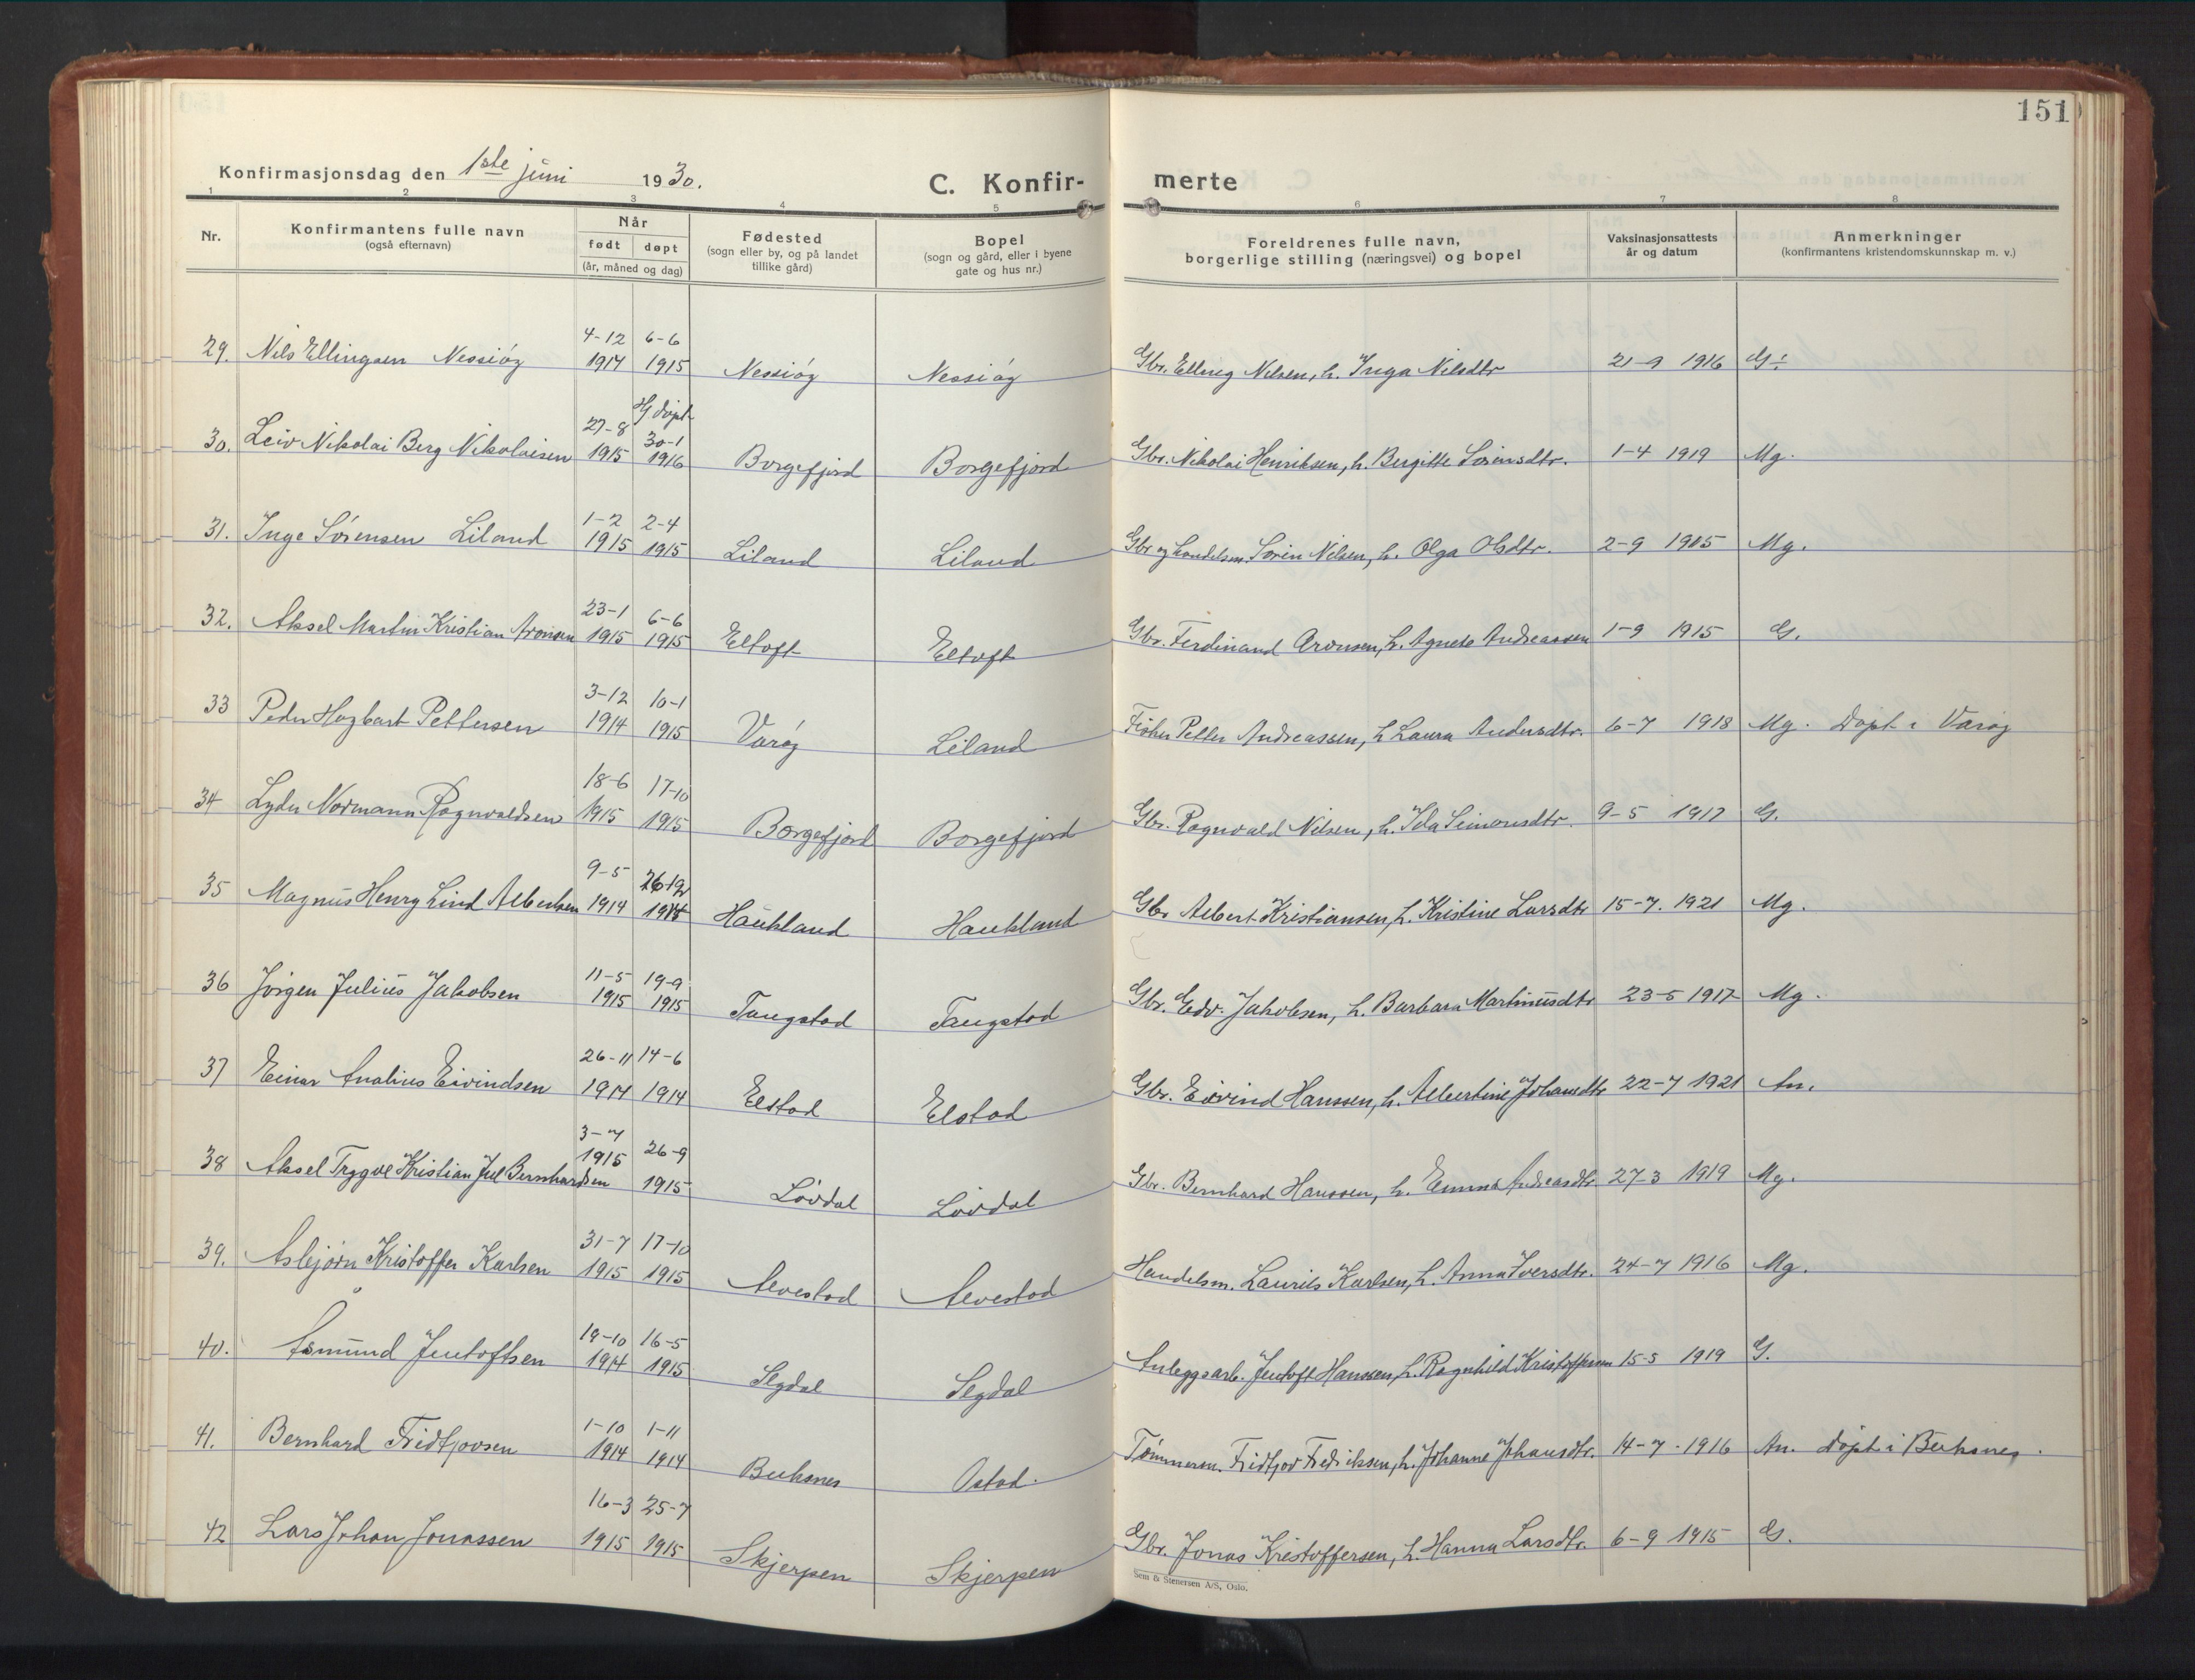 151
Konfirmasjonsdag den 1ste juni 1930.
C. Konfirmerte
1 2 3 4 5 6 7 8
Nr.
Konfirmantens fulle navn
(også efternavn)
Når
født døpt
(år, måned og dag)
Fødested
(sogn eller by, og på landet
tillike gård)
Bopel
(sogn og gård, eller i byene
gate og hus nr.)
Foreldrenes fulle navn,
borgerlige stilling (næringsvei) og bopel
Vaksinasjonsattests
år og datum
Anmerkninger
(konfirmantens kristendomskunnskap m. v.)
4-12 6-6
29. Nils Ellingsen Nessjøy 1914 1915 Nessjøy Nessjøy Gbr. Elling Nilsen, h. Inga Nilsdtr 21-9 1916 G:
Hj. døpt
27-8 30-1
30. Leiv Nikolai Berg Nikolaisen 1915 1916 Borgefjord Borgefjord Gbr. Nikolai Henriksen, h. Bergitte Sørensdtr. 1-4 1919 Mg.
1-2 2-4
31. Inge Sørensen Liland 1915 1915 Liland Liland Gbr og handelsm. Sørin Nilsen, h. Olga Olsdtr. 2-9 1915 Mg.
23-1 6-6
32. Aksel Martin Kristian Aronsen 1915 1915 Eltoft Eltoft Gbr. Ferdinand Aronsen, h. Agnete Andreassen 1-9 1915 G.
3-12 10-1
33 Peder Hagbart Pettersen 1914 1915 Værøy Liland Fisker Petter Andreassen, h Laura Andersdtr. 6-7 1918 Mg. Døpt i Værøy
18-6 17-10
34 Lyder Normann Ragnvaldsen 1915 1915 Borgefjord Borgefjord Gbr. Ragnvald Nilsen, h. Ida Simonsdtr. 9-5 1917 G.
9-5 26-12
35 Magnus Henry Lind Albertsen 1914 1914 Haukland Haukland Gbr Albert Kristiansen, h. Kristine Larsdtr 15-7. 1921 Mg.
11-5 19-9
36 Jørgen Julius Jakobsen 1915 1915 Tangstad Tangstad Gbr. Edv. Jakobsen, h. Barbara Martinusdtr 23-5 1917 Mg.
26-11 14-6
37 Einar Analius Eivindsen 1914 1914 Elstad Elstad Gbr. Eivind Hanssen, h. Albertine Johansdtr 22-7 1921 An.
3-7 26-9
38 Aksel Trygve Kristian Jul Bernhardsen 1915 1915 Løvdal Løvdal Gbr. Bernhard Hanssen, h. Emma Andreasdtr 27-3 1919 Mg.
31-7 17-10
39. Asbjørn Kristoffer Karlsen 1915 1915 Alvestad Alvestad Handelsm. Laurits Karlsen, h. Anna Iversdtr. 24-7 1916 Mg.
19-10 16-5
40. Åsmund Jentoftsen 1914 1915 Segdal Segdal Anleggsarb. Jentoft Hanssen, h. Ragnhild Kristoffersen 15-5 1919 G.
1-10 1-11
41. Bernhard Fridtjovsen 1914 1914 Buksnes Ostad. Tømmerm. Fridtjov Fredriksen, h. Johanne Johansdtr. 14-7. 1916 An. døpt i Buksnes.
16-3 25-7
42 Lars Johan Jonassen 1915 1915 Skjerpen Skjerpen Gbr. Jonas Kristoffersen, h. Hanna Larsdtr. 6-9 1915 G.
Sem & Stenersen A/S, Oslo.